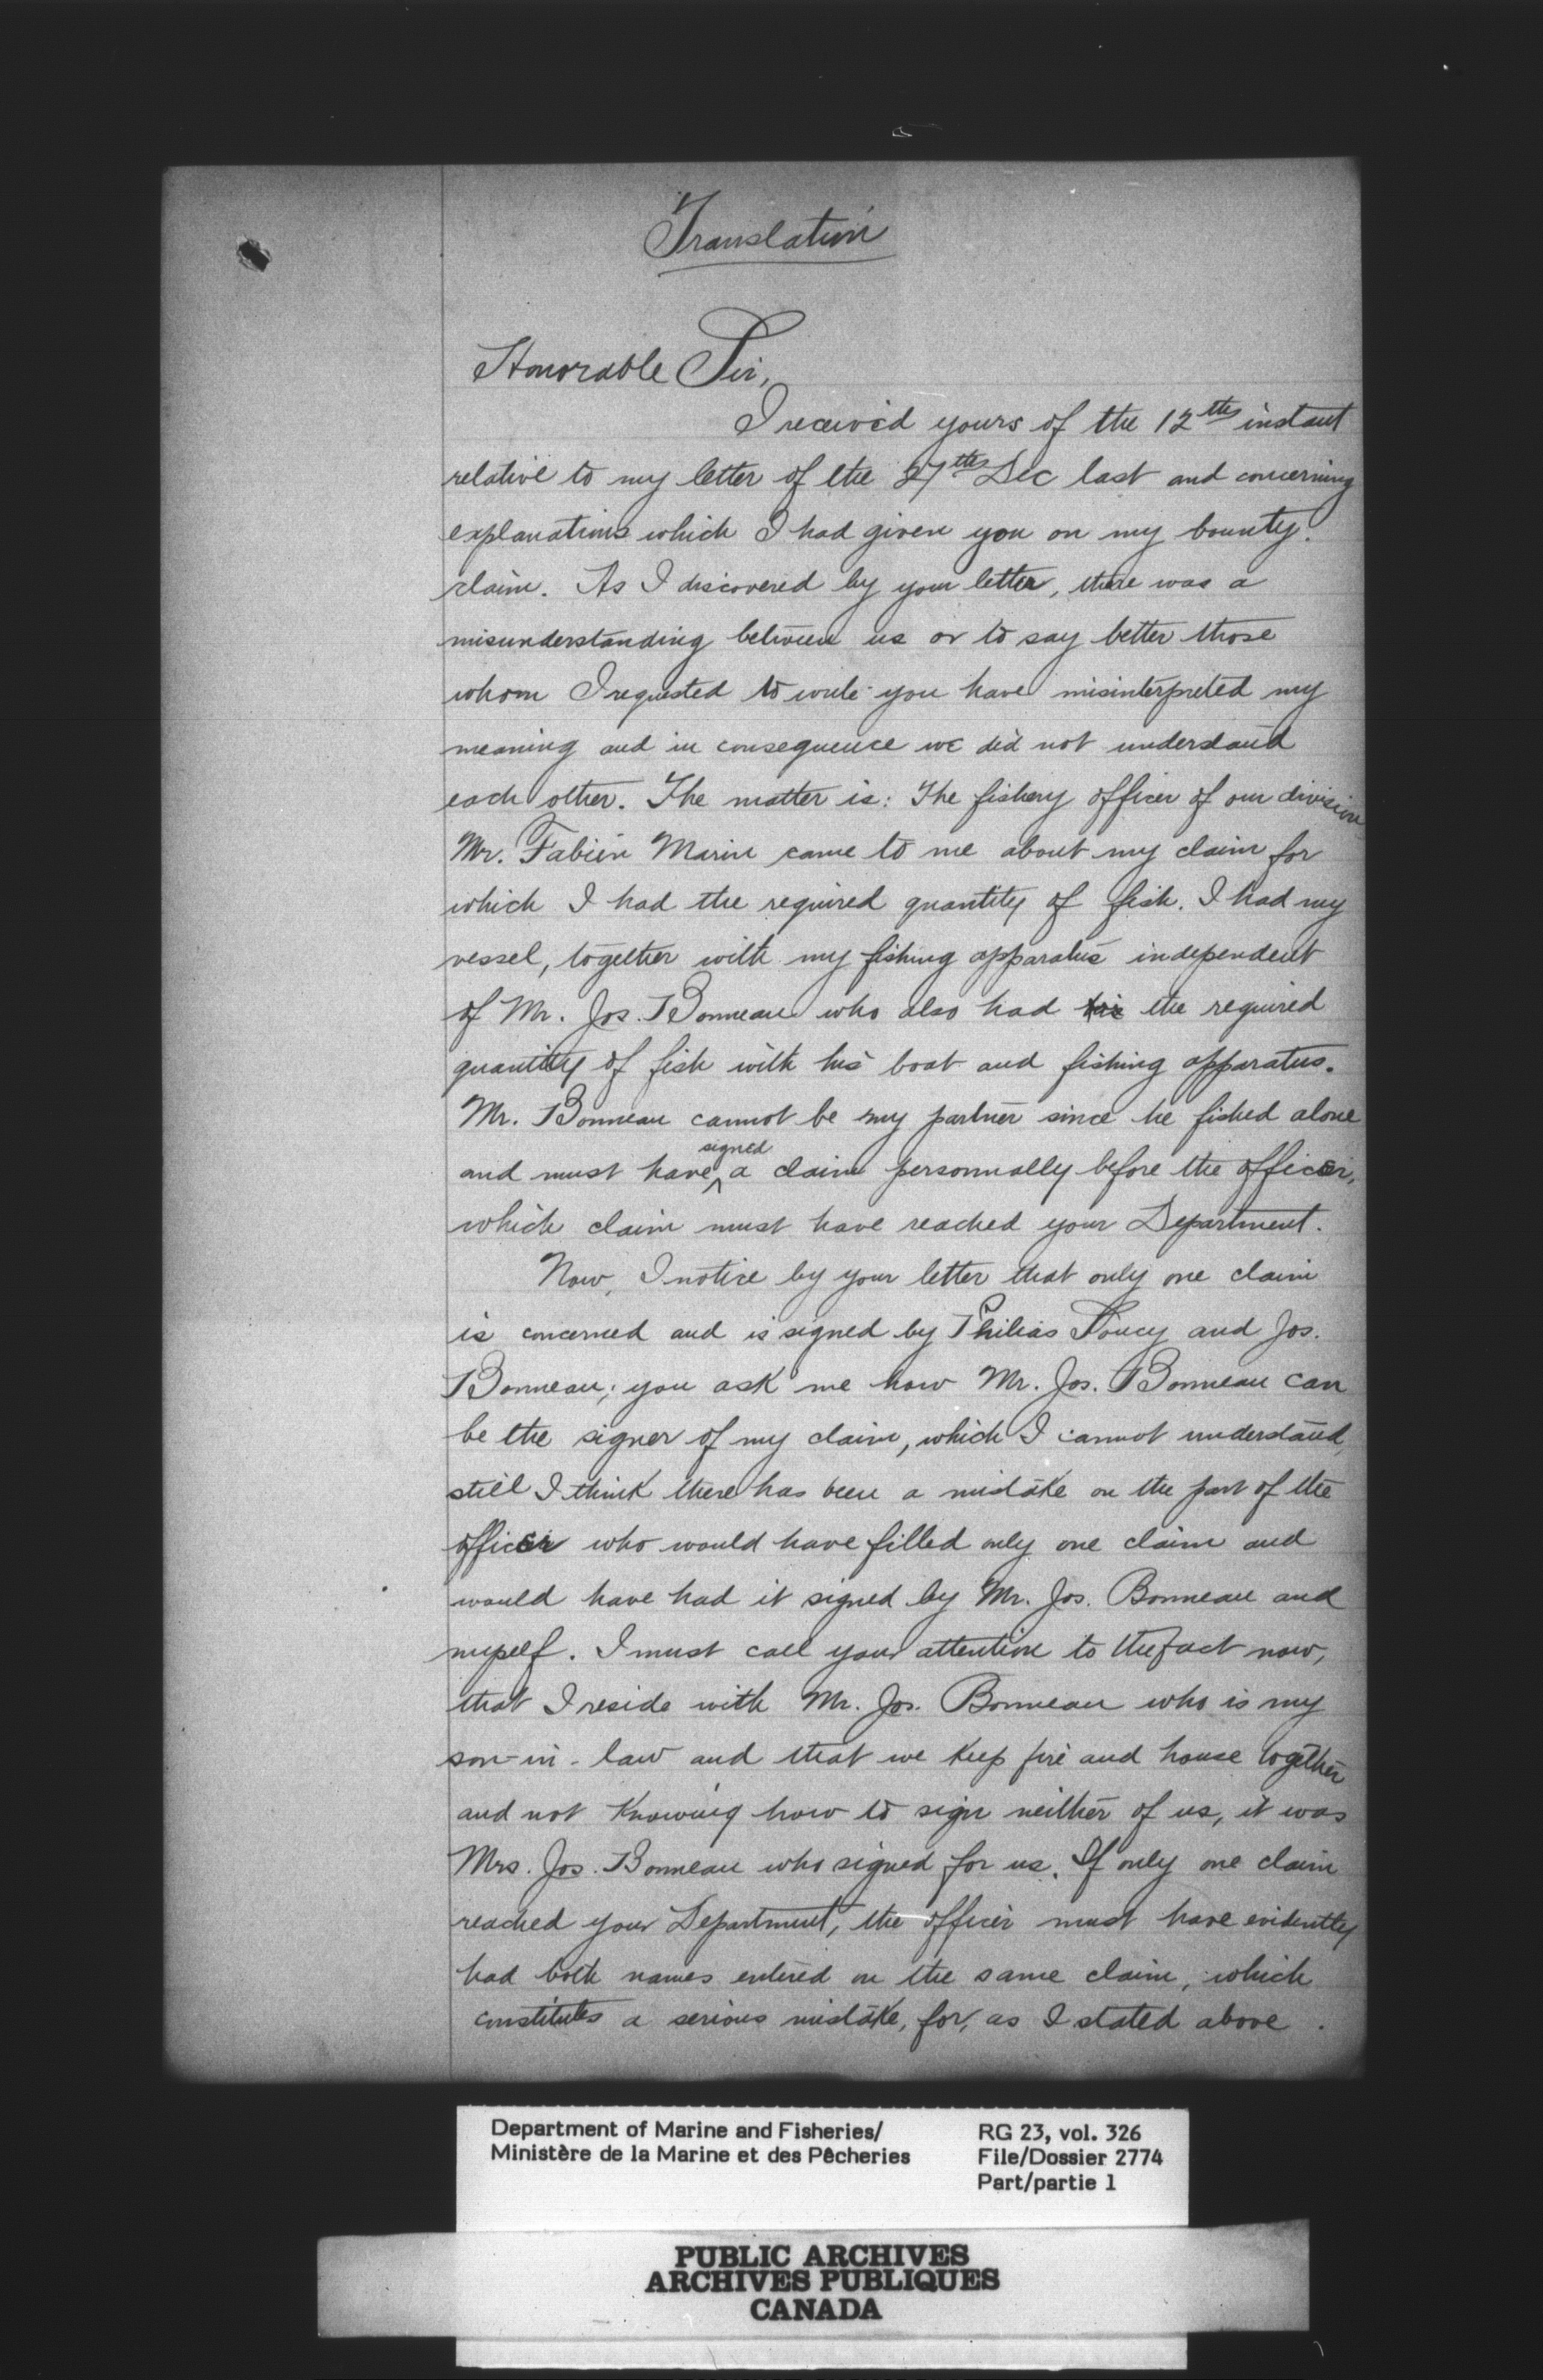 Translation
Honorable Sir,
I receiv'd yours of the 12th instant
relative to my letter of the 27th Dec last and concerning
explanations which I had given you on my bounty
claim. As I discovered by your letter, there was a
misunderstanding between us or to say better those
whom I requested to write you have misinterpreted my
meaning and in consequence we did not understand
each other. The matter is: The fishery officer of our division
Mr. Fabien Marin came to me about my claim for
which I had the required quantity of fish. I had my
vessel, together with my fishing apparatus independent
of Mr. Jos. Bonneau who also had his the required
quantity of fish with his boat and fishing apparatus.
Mr. Bonneau cannot be my partner since he fished alone
and must have signed a claim personnally before the officer,
which claim must have reached your Department.
Now, I notice by your letter that only one claim
is concerned and is signed by Philias Soucy and Jos.
Bonneau; you ask me how Mr. Jos. Bonneau can
be the signer of my claim, which I cannot understand,
still I think there has been a mistake on the part of the
officer who would have filled only one claim and
would have had it signed by Mr. Jos. Bonneau and
myself. I must call your attention to the fact now,
that I reside with Mr. Jos. Bonneau who is my
son-in-law and that we keep fire and house together
and not knowing how to sign neither of us, it was
Mrs. Jos. Bonneau who signed for us. If only one claim
reached your Department, the officer must have evidently
had both names entered on the same claim, which
constitutes a serious mistake, for, as I stated above.
Department of Marine and Fisheries/
Ministère de la Marine et des Pêcheries
RG 23, vol. 326
File/Dossier 2774
Part/partie 1
PUBLIC ARCHIVES
ARCHIVES PUBLIQUES
CANADA